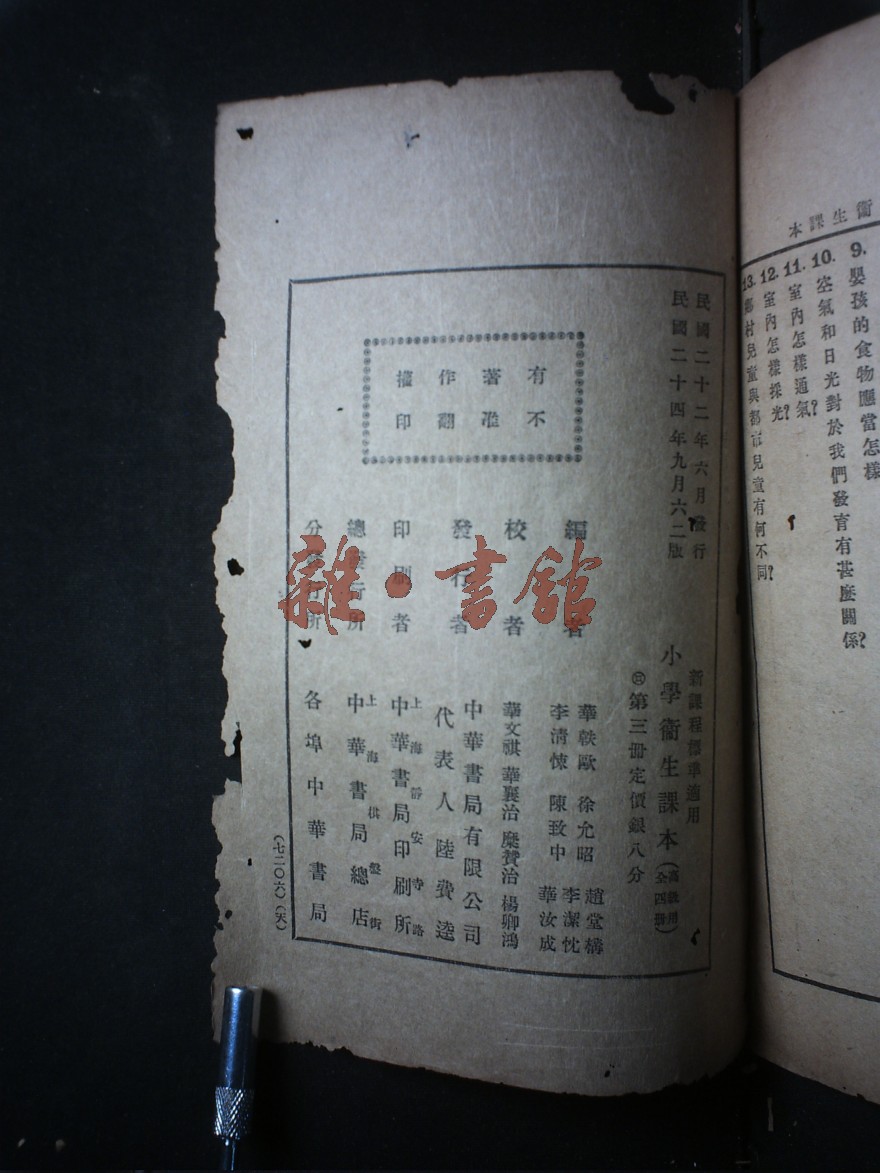 衞生課本
9. 嬰孩的食物應當怎樣
10. 空氣和日光對於我們發育有甚麼關係?
11. 室內怎樣通氣?
12. 室內怎樣採光?
13. 鄉村兒童與都市兒童有何不同?
民國二十二年六月發行
民國二十四年九月六二版
新課程標準適用
小學衞生課本(高級用 全四冊)
第三冊定價銀八分
有著作權
不准翻印
編者
華軼歐 徐允昭 趙堂構
李清悚 陳致中 李潔忱
華汝成
校者
華文祺 華襄治 糜贊治 楊卿鴻
發行者
中華書局有限公司
代表人 陸費逵
印刷者
上海靜安寺路
中華書局印刷所
總發行所
上海棋盤街
中華書局總店
分發行所
各埠中華書局
(七二〇六)(天)
雜·書館